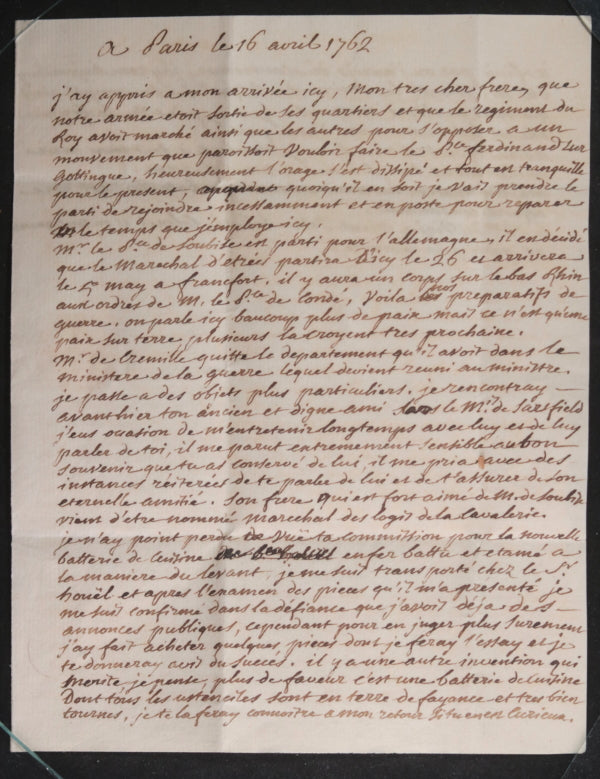 a Paris le 16 avril 1762
j'ay appris a mon arrivée icy, Mon tres cher frere, que
notre armée etoit sortie de ses quartiers et que le regiment du
Roy avoit marché ainsi que les autres pour s'opposer a un
mouvement que paroissoit vouloir faire le P.ce ferdinand sur
Gottingue, heureusement l'orage s'est dissipé et tout en tranquille
pour le present, quoiqu'il en soit je vais prendre le
parti de rejoindre incessamment et en poste pour reparer
le temps que j'employe icy.
Mr. le P.ce de Soubise en parti pour l'allemagne, il en décidé
que le Marechal d'etrées partira d'icy le 26 et arrivera
le may a francfort, il y aura un corps sur le bas Rhin
aux ordres de M. le P.ce de Condé, Voila nos preparatifs de
guerre, on parle icy baucoup plus de paix mais ce n'est qu'une
paix sur terre, plusieurs la croyent tres prochaine.
M.r de Cremille quitte le departement qu'il avoit dans le
ministere de la guerre lequel devient reuni au ministre.
je passe a des objets plus particuliers. je rencontray
avanthier ton ancien et digne ami le M.is de Sarsfield
j'eus ocasion de m'entretenir longtemps avec luy et de luy
parler de toi, il me parut entremement sensible au bon
souvenir que tu as conservé de lui, il me pria avec des
instances reiterées de te parler de lui et de t'assurer de son
eternelle amitié. Son frere qui est fort aimé de M. de Soubise
vient d'etre nommé marechal des logis de la Cavalerie.
je n'ay point perdu de vuë ta commission pour la nouvelle
batterie de Cuisine en fer battu et etamé a
la maniere du levant, je me suis transporté chez le S.r
houël et apres l'examen des pieces qu'il m'a presenté je
me suis confirmé dans la défiance que j'avois déja des
annonces publiques, cependant pour en juger plus surement
j'ay fait acheter quelques pieces dont je feray l'essay et je
te donneray avis du succes. il y a une autre invention qui
merite je pense, plus de faveur c'est une batterie de Cuisine
Dont tous les ustenciles sont en terre de fayance et tres bien
tournés, je te la feray connoitre a mon retour si tu en es Curieux.